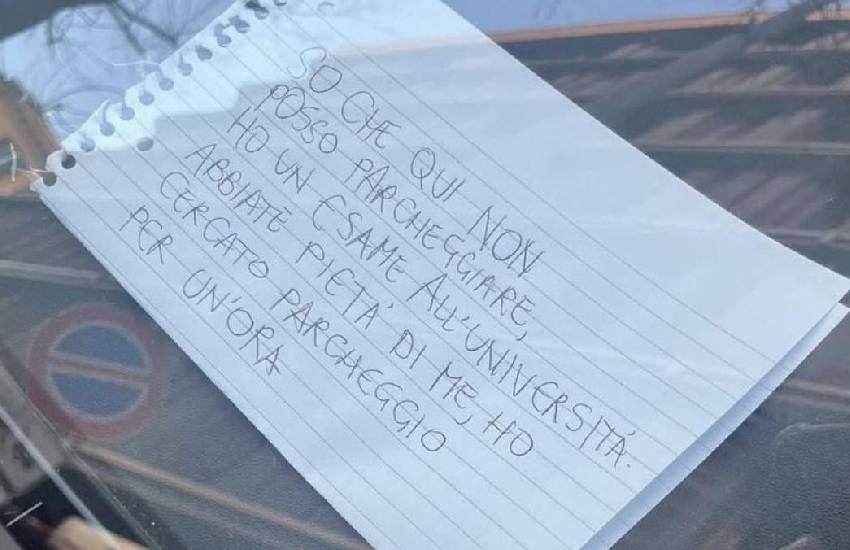 SO CHE QUI NON
POSSO PARCHEGGIARE,
HO UN ESAME ALL'UNIVERSITÁ.
ABBIATE PIETA' DI ME, HO
CERCATO PARCHEGGIO
PER UN'ORA